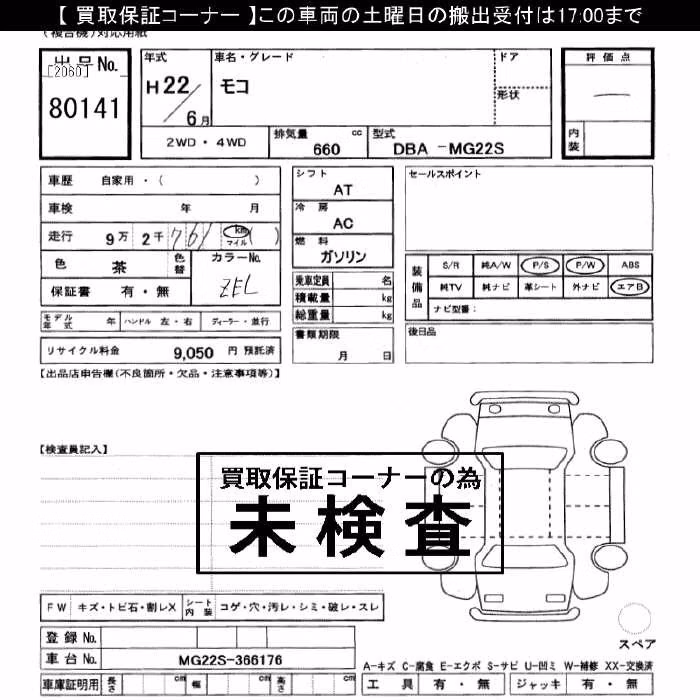 【 買取保証コーナー 】この車両の土曜日の搬出受付は17:00まで
(複合機)対応用紙
出品No.
[2060]
80141
年式
H22/6月
車名・グレード
モコ
ドア
形状
評価点
内装
2WD・4WD
排気量 cc
660
型式
DBA -MG22S
車歴 自家用・( )
車検 年 月
走行 9万 2千 761 km マイル ( )
色 茶 色替
カラーNo.
ZEL
保証書 有・無
モデル年式 年 ハンドル 左・右 ディーラー・並行
リサイクル料金 9,050 円 預託済
シフト
AT
冷房
AC
燃料
ガソリン
乗車定員 名
積載量 kg
総重量 kg
書類期限
月 日
セールスポイント
装備品
S/R 純A/W P/S P/W ABS
純TV 純ナビ 革シート 外ナビ エアB
ナビ型番:
後日品
【出品店申告欄(不良箇所・欠品・注意事項等)】
【検査員記入】
買取保証コーナーの為
未検査
FW キズ・トビ石・割レX シート内装 コゲ・穴・汚レ・シミ・破レ・スレ
登録 No.
車台 No. MG22S-366176
車庫証明用 長さ cm 幅 cm 高さ cm
スペア
A-キズ C-腐食 E-エクボ S-サビ U-凹ミ W-補修 XX-交換済
工具 有・無 ジャッキ 有・無